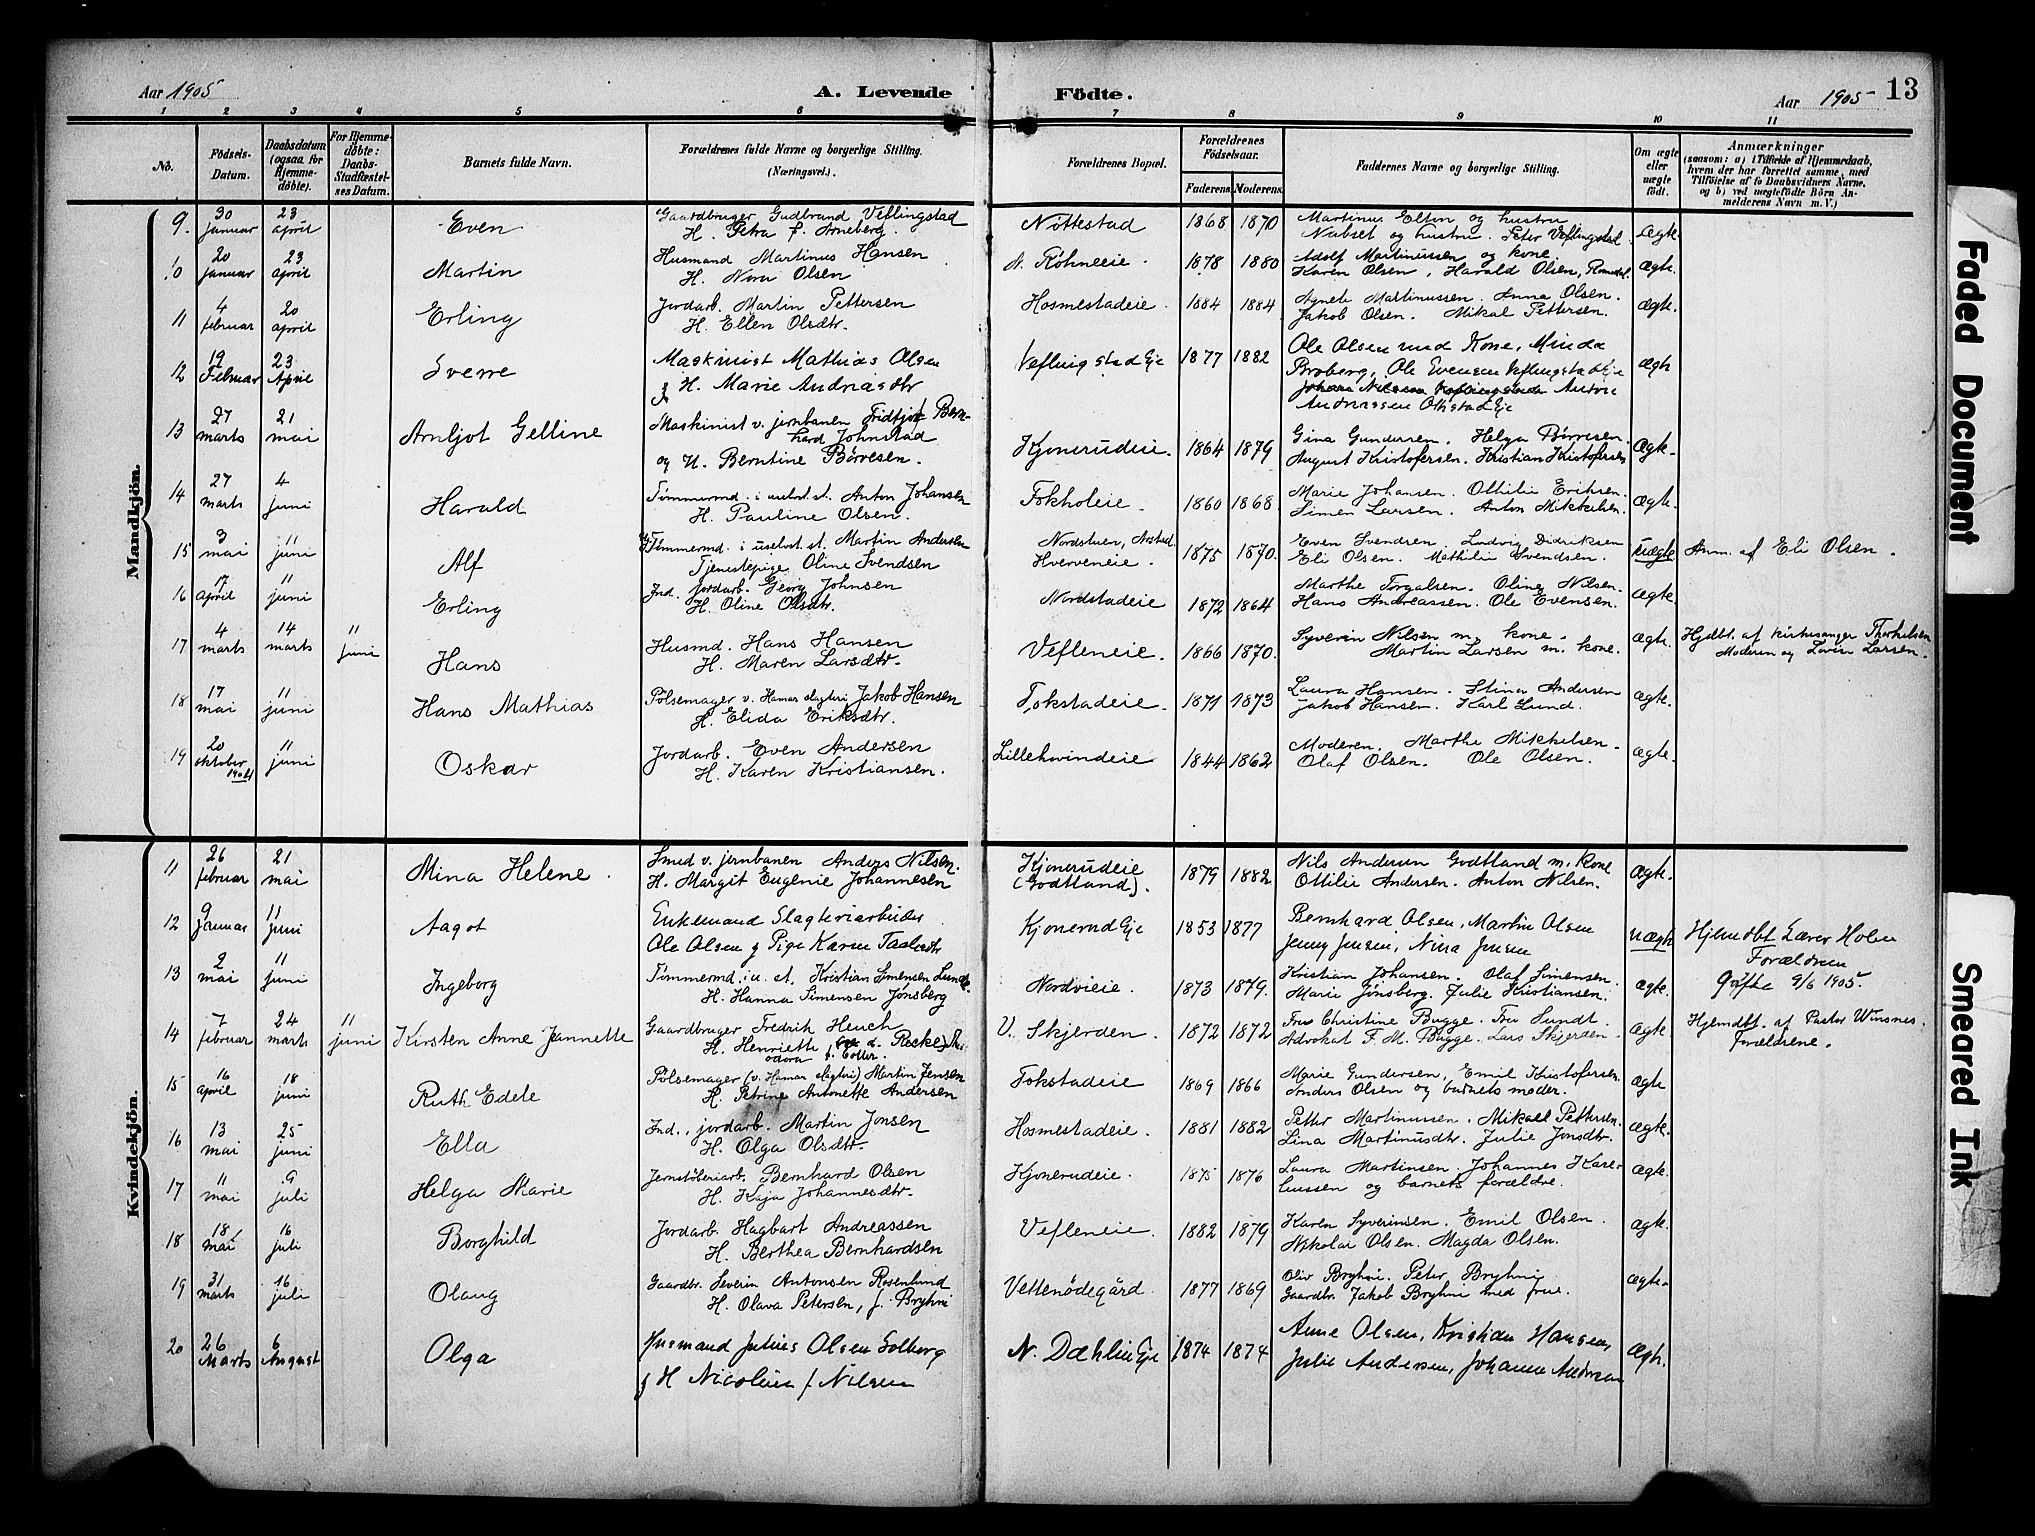 Aar 1905
A. Levende
Födte.
Aar 1905
13
1 2 3 4 5 6 7 8 9 10 11
No.
Födsels-
Datum.
Daabsdatum
(ogsaa for
Hjemme-
döbte).
For Hjemme-
döbte:
Daabs-
Stadfæstel-
ses Datum.
Barnets fulde Navn.
Forældrenes fulde Navne og borgerlige Stilling.
(Næringsvei.)
Forældrenes Bopæl.
Forældrenes
Födselsaar.
Faderens. Moderens.
Faddernes Navne og borgerlige Stilling.
Om ægte
eller
uægte
födt.
Anmærkninger
(saasom: a) i Tilfælde af Hjemmedaab,
hvem der har forrettet samme, med
Tilföielse af to Daabsvidners Navne,
og b) ved uegtefödte Börn An-
melderens Navn m. V.)
Mandkjön.
9. 30 januar 23 april Even
Gaardbruger Gudbrand Veflingstad
H. Petra f. Arneberg.
Nøttestad 1868 1870
Martinus Elton og hustru
Nabset og hustru. Peter Veflingstad.
Ægte.
10 20 januar 23 april Martin
Husmand Martinus Hansen
H. Nora Olsen
N. Røhneeie. 1878 1880
Adolf Martinussen og kone.
Karen Olsen, Harald Olsen,
Ægte.
11 4 februar 20 april Erling
Jordarb. Martin Pettersen
H. Ellen Olsdtr.
Hosmestadeie. 1884 1884
Agnete Martinussen. Anna Olsen.
Jakob Olsen. Mikal Pettersen.
Ægte.
12 19 Februar 23 April Sverre
Maskinist Mathias Olsen
& H. Marie Andriasdtr
Veflingstad Eje 1877 1882
Ole Olsen med Kone, Minda
Broberg, Ole Evensen Veflingstad Eje
Johan Nilsen Veflingstad Andrie
Andreassen Ottestad Eje
Ægte
13 27 marts 21 mai Arnljot Gelline
Maskinist v. jernbanen Fridtjof Bern-
hard Johnstad
og H. Berntine Børresen.
Kjonerudeie. 1864 1879
Gina Gundersen. Helga Børresen.
August Kristofersen. Kristian Kristofersen
Ægte.
14 27 marts 4 juni Harald
Tømmermd. i uselvst. st. Anton Johansen
H. Pauline Olsen.
Fokholeie. 1860 1868
Marie Johansen. Othilie Eriksen.
Simen Larsen. Anton Mikkelsen.
Ægte.
15 3 mai 11 juni Alf
Tømmermd. i uselvst. st. Martin Andersen
Tjenestepige Oline Svendsen
Nordstuen, Arstad.
Hverveneie. 1875 1870.
Even Svendsen. Ludvig Didriksen
Eli Olsen. Mathilie Svendsen.
Uægte
Anm. af Eli Olsen.
16 17 april 11 juni Erling
Ind. jordarb. Georg Johnsen
H. Oline Olsdtr.
Nordstadeie 1872 1864
Marthe Torgalsen. Oline Nilsen.
Hans Andreassen. Ole Evensen.
Ægte.
17 4 marts 14 marts 11 juni Hans
Husmd. Hans Hansen
H. Maren Larsdtr.
Vefleneie. 1866 1870.
Syverin Nilsen m. kone.
Martin Larsen m. kone.
Ægte.
Hjdbt. af kirkesanger Thorkelsen
Moderen og Lovise Larsen.
18 17 mai 11 juni Hans Mathias
Pølsemager v. Hamar slagteri Jakob Hansen
H. Elida Eriksdtr.
Fokstadeie. 1871 1873
Laura Hansen. Stina Andersen
Jakob Hansen. Karl Lund.
Ægte.
19 20 oktober 1904 11 juni Oskar
Jordarb. Even Andersen
H. Karen Kristiansen.
Lillehvindeie 1844 1862
Moderen. Marthe Mikkelsen.
Olaf Olsen. Ole Olsen.
Ægte.
Kvindekjön.
11 26 februar 21 mai Mina Helene.
Smed v. jernbanen Anders Nilsen.
H. Margit Eugenie Johannesen
Kjonerudeie
(Godtland). 1879 1882
Nils Andersen Godtland m. kone
Ottilie Andersen. Anton Nilsen.
Ægte.
12 9 Januar 11 juni Aagot
Enkemand Slagteriarbeider
Ole Olsen & Pige Karen
Kjonerud Eje 1853 1877
Bernhard Olsen, Martin Olsen
Jenny Jensen, Nina Jensen
Uægte
Hjemdbt Lærer Holen
Forældrene
Gifte 9/6 1905.
13 2 mai 11 juni Ingeborg
Tømmermd. i u. st. Kristian Simensen Lunde.
H. Hanna Simensen Jønsberg
Nordvieie. 1873 1879.
Kristian Johansen. Olaf Simensen.
Marie Jønsberg. Julie Kristiansen.
Ægte.
14 7 februar 24 marts 11 juni Kirsten Anne Jeannette
Gaardbruger Fredrik Heuch
H. Henriette
V. Skjerden. 1872 1872
Fru Christine Bugge. Fru Sundt.
Advokat F. M. Bugge. Lars Skjerden.
Ægte
Hjemdbt. af Pastor Winsnes.
Forældrene.
15 16 april 18 juni Ruth Edele
Pølsemager (v. Hamar slagteri) Martin Jensen
H. Petrine Antonette Andersen
Fokstadeie 1869 1866
Marie Gundersen, Emil Kristofersen.
Anders Olsen og barnets moder.
Ægte
16 13 mai 25 juni Ella
Ind., jordarb. Martin Jonsen
H. Olga Olsdtr.
Hosmestadeie. 1881 1882
Petter Martinussen. Mikael Pettersen.
Lina Martinusdtr. Julie Jonsdtr.
Ægte.
17 11 mai 9 juli Helga Marie
Jernstöberiarb. Bernhard Olsen
H. Kaja Johannesdtr.
Kjonerudeie. 1875 1876
Laura Martinsen. Johannes Kare-
liussen og barnets forældre.
Ægte.
18 18 mai 16 juli Borghild
Jordarb. Hagbart Andreassen
H. Berthea Bernhardsen
Vefleneie. 1882 1879
Karen Syverinsen. Emil Olsen.
Nikolai Olsen. Magda Olsen.
Ægte.
19 31 marts 16 juli Olaug
Gaardbr. Severin Antonsen Rosenlund
H. Olava Petersen, f. Bryhni
Vettenødegård. 1877 1869
Oliv Bryhni. Peter Bryhni
Gaardbr. Jakob Bryhni med frue.
Ægte.
20 26 Marts 6 August Olga
Husmand Julius Olsen Solberg
& H Nicoline f. Nilsen
N. Dæhlin Eje 1874 1874
Anne Olsen, Kristian Hansen,
Julie Andersen, Johanne Andersen
Ægte.
Faded Document
Smeared Ink